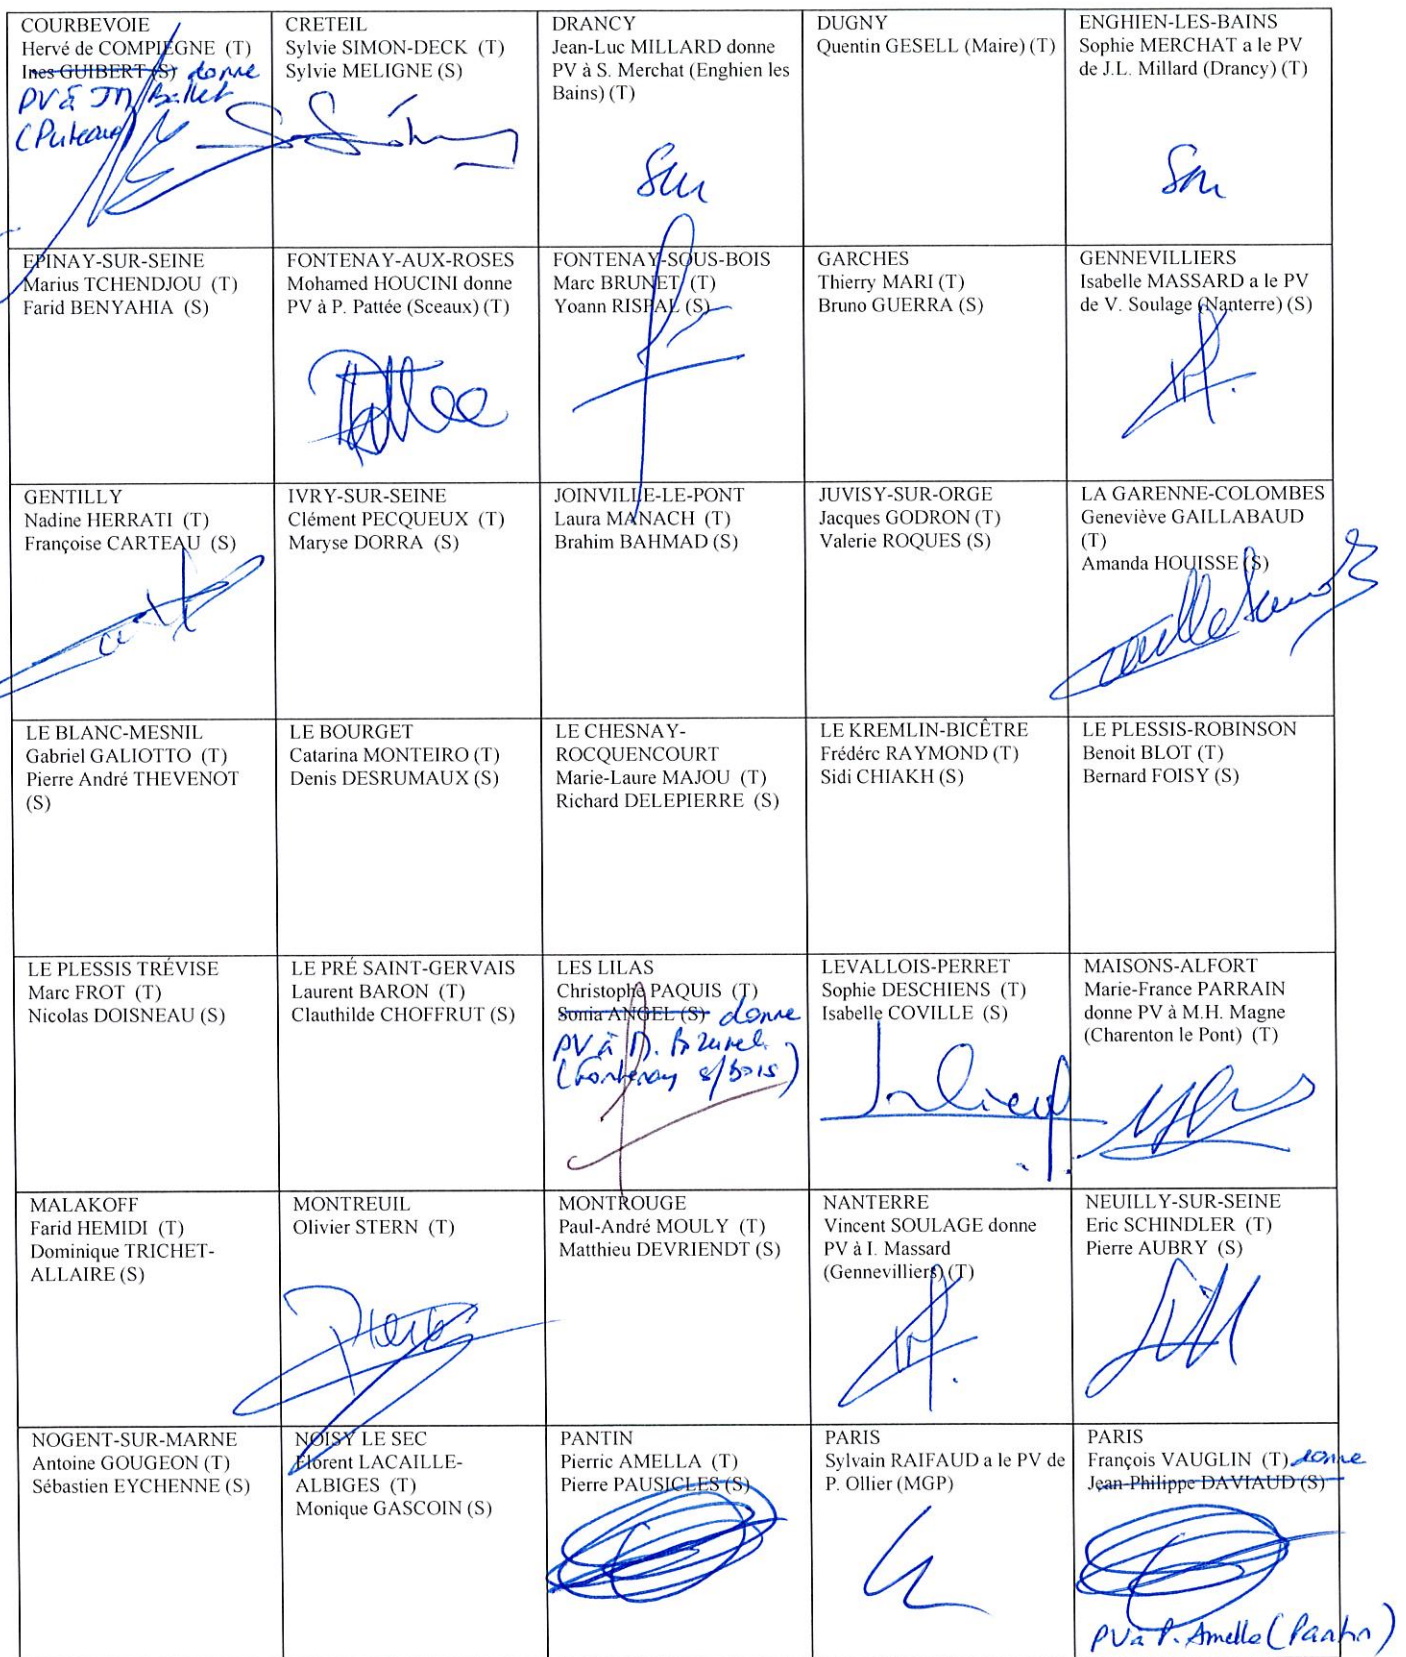 COURBEVOIE
Hervé de COMPIEGNE (T)
Ines GUIBERT (S) donne
PV à JM Ballet
(Puteaux)
CRETEIL
Sylvie SIMON-DECK (T)
Sylvie MELIGNE (S)
DRANCY
Jean-Luc MILLARD donne
PV à S. Merchat (Enghien les
Bains) (T)
DUGNY
Quentin GESELL (Maire) (T)
ENGHIEN-LES-BAINS
Sophie MERCHAT a le PV
de J.L. Millard (Drancy) (T)
EPINAY-SUR-SEINE
Marius TCHENDJOU (T)
Farid BENYAHIA (S)
FONTENAY-AUX-ROSES
Mohamed HOUCINI donne
PV à P. Pattée (Sceaux) (T)
Pattée
FONTENAY-SOUS-BOIS
Marc BRUNET (T)
Yoann RISPAL (S)
GARCHES
Thierry MARI (T)
Bruno GUERRA (S)
GENNEVILLIERS
Isabelle MASSARD a le PV
de V. Soulage (Nanterre) (S)
GENTILLY
Nadine HERRATI (T)
Françoise CARTEAU (S)
IVRY-SUR-SEINE
Clément PECQUEUX (T)
Maryse DORRA (S)
JOINVILLE-LE-PONT
Laura MANACH (T)
Brahim BAHMAD (S)
JUVISY-SUR-ORGE
Jacques GODRON (T)
Valerie ROQUES (S)
LA GARENNE-COLOMBES
Geneviève GAILLABAUD
(T)
Amanda HOUISSE (S)
LE BLANC-MESNIL
Gabriel GALIOTTO (T)
Pierre André THEVENOT
(S)
LE BOURGET
Catarina MONTEIRO (T)
Denis DESRUMAUX (S)
LE CHESNAY-
ROCQUENCOURT
Marie-Laure MAJOU (T)
Richard DELEPIERRE (S)
LE KREMLIN-BICÊTRE
Frédérc RAYMOND (T)
Sidi CHIAKH (S)
LE PLESSIS-ROBINSON
Benoit BLOT (T)
Bernard FOISY (S)
LE PLESSIS TRÉVISE
Marc FROT (T)
Nicolas DOISNEAU (S)
LE PRÉ SAINT-GERVAIS
Laurent BARON (T)
Clauthilde CHOFFRUT (S)
LES LILAS
Christophe PAQUIS (T)
Sonia ANGEL (S) donne
PV à
(Fontenay s/bois)
LEVALLOIS-PERRET
Sophie DESCHIENS (T)
Isabelle COVILLE (S)
MAISONS-ALFORT
Marie-France PARRAIN
donne PV à M.H. Magne
(Charenton le Pont) (T)
MALAKOFF
Farid HEMIDI (T)
Dominique TRICHET-
ALLAIRE (S)
MONTREUIL
Olivier STERN (T)
MONTROUGE
Paul-André MOULY (T)
Matthieu DEVRIENDT (S)
NANTERRE
Vincent SOULAGE donne
PV à I. Massard
(Gennevilliers) (T)
NEUILLY-SUR-SEINE
Eric SCHINDLER (T)
Pierre AUBRY (S)
NOGENT-SUR-MARNE
Antoine GOUGEON (T)
Sébastien EYCHENNE (S)
NOISY LE SEC
Florent LACAILLE-
ALBIGES (T)
Monique GASCOIN (S)
PANTIN
Pierric AMELLA (T)
Pierre PAUSICLES (S)
PARIS
Sylvain RAIFAUD a le PV de
P. Ollier (MGP)
PARIS
François VAUGLIN (T) donne
Jean-Philippe DAVIAUD (S)
PV à P. Amella (Pantin)